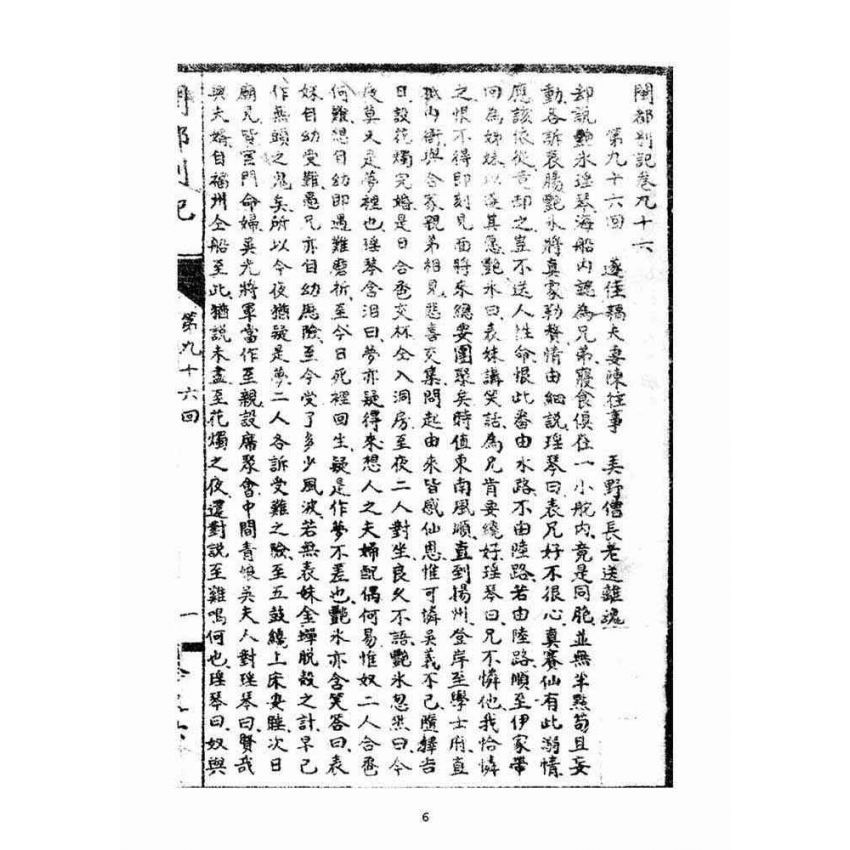 閩都別記卷九十六
第九十六回 遂侄續夫妻陳往事 吴野僧長老送離魂
却説艷氷瑶琴海船内認為兄弟寢食俱在一小舵内竟是同胞並無半點苟且妄
動各訴衷腸艷氷將真家勒贅情由細説瑶琴曰表兄好不很心真賽仙有此溺情
應該依從竟却之豈不送人性命恨此番由水路不由陸路若由陸路順至伊家帶
回為姊妹以遂其愿艷氷曰表妹講笑話為兄肯要繞好瑶琴曰兄不憐他我恰憐
之恨不得即刻見面將來總要團聚矣時值東南風順直到揚州登岸至學士府直
抵内衙與合家親弟相見悲喜交集問起由來皆感仙恩惟可憐吴義不已隨擇吉
日設花燭完婚是日合卺交杯仝入洞房至夜二人對坐良久不語艷氷忽然曰今
夜莫又是夢裡也瑶琴含泪曰夢亦疑得來想人之夫婦配偶何易惟奴二人合卺
何難想自幼即遇難磨折至今日死裡回生疑是作夢不差也艷氷亦含笑答曰表
妹自幼受難愚兄亦自幼歷險至今受了多少風波若無表妹金蟬脱殻之計早已
作無頭之鬼矣所以今夜猶疑是夢二人各訴受難之險至五鼓繞上床安睡次日
廟見皆宦門命婦吴光將軍當作至親設席聚會中間青娘吴夫人對瑶琴曰賢哉
與夫婿自福州仝船至此猶説未盡至花燭之夜還對説至雞鳴何也瑶琴曰奴與
閩都別記
第九十六回
一